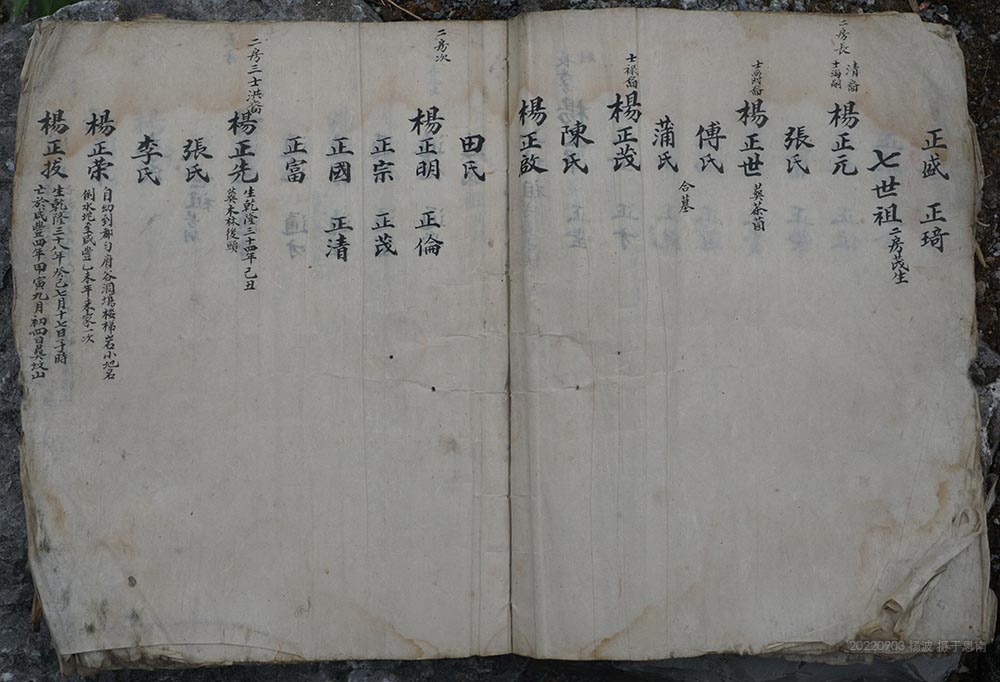 正盛 正琦
七世祖 二房茂生
二房長 清裔 士海嗣
楊正元
張氏
楊正世 葵茶茵
傅氏
蒲氏 合墓
士祿裔
楊正茂
陳氏
楊正啟
田氏
二房次
楊正明 正倫
正宗 正茂
正國 正清
正富
二房三士洪裔
楊正先 生乾隆三十四年己丑
葵木林後頭
張氏
李氏
楊正荣 自幼到都勻府谷洞塆楼梯岩小地名
倒水坨至咸豐乙未年来家一次
楊正拔 生乾隆三十八年癸己七月十七日子時
亡於咸豐四年甲寅九月初四日葵坟山
20220903 杨波 摄于思南